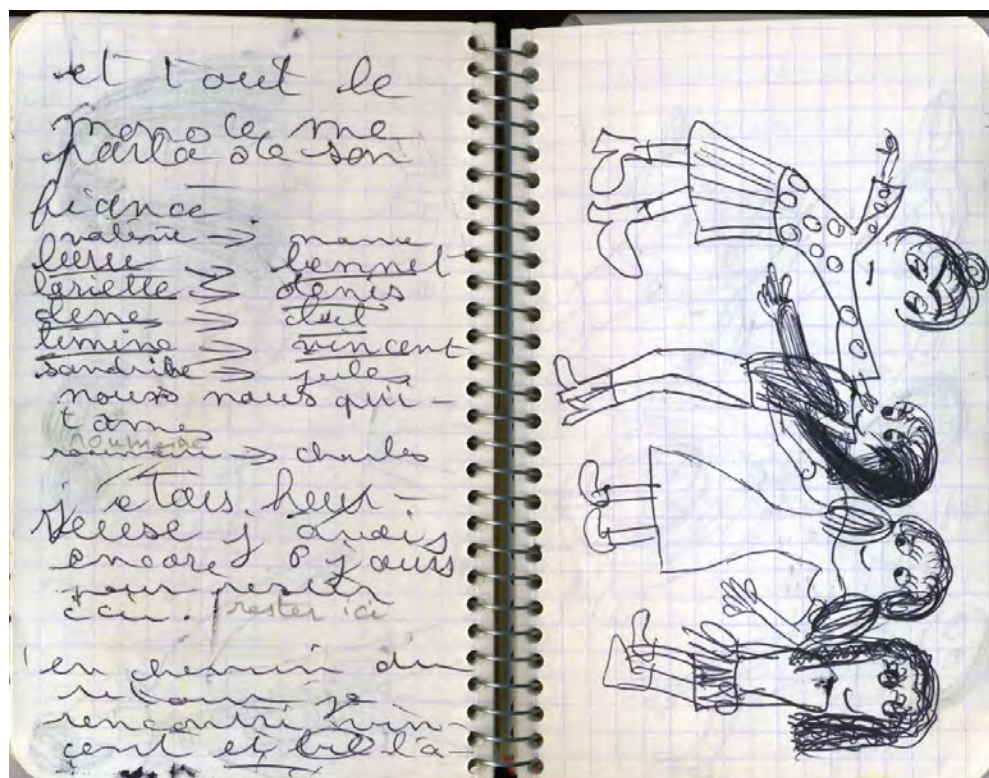 et tout le
monde me
parla de son
fiance
valerie →
→ bonnet
larielle → denis
→
→ vincent
sandrine → jules
nous nous qui-
tames
roumaine
→ charles
j etais heur-
reuse j avais
encore 8 jours
pour rester
ici. rester ici
en chemin du
retour je
rencontri vin-
cent et l'a-